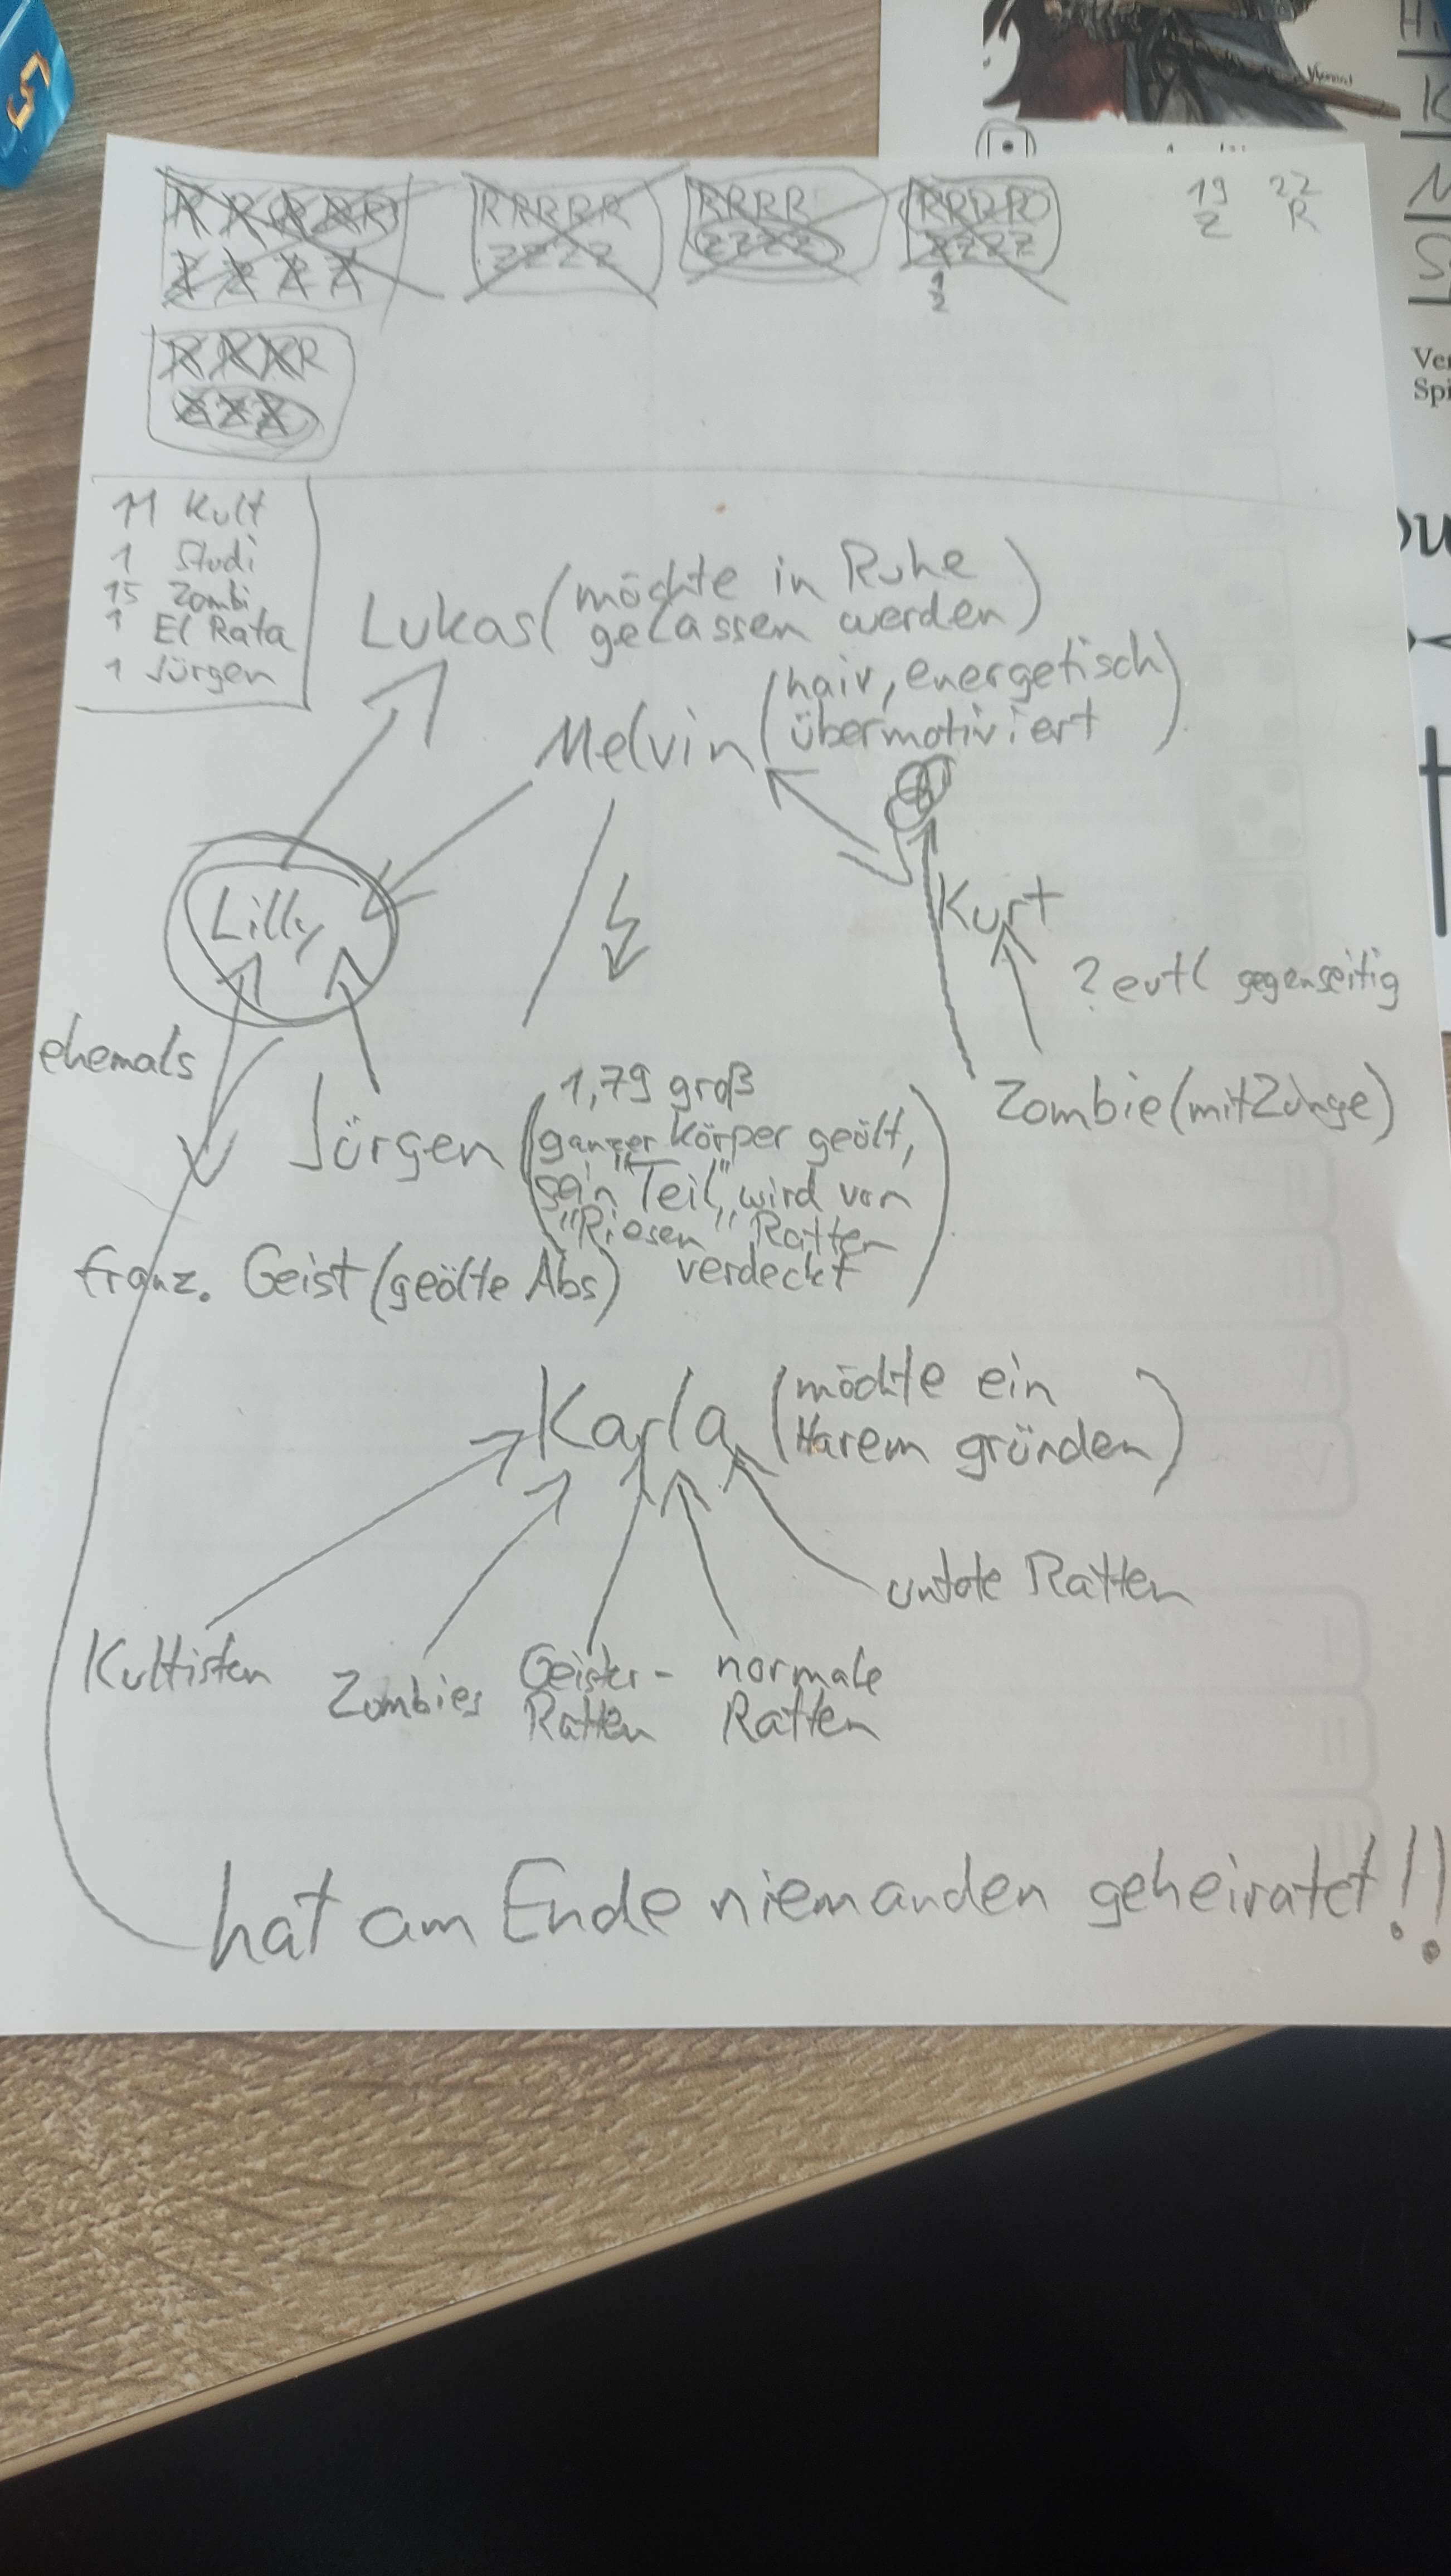 5
RRRRR
ZZZZ
RRRR
ZZZZ
RRRR
ZZZZ
ZZZZ
19 22
Z R
RRRR
ZZZ
11 Kult
1 Studi
15 Zombi
1 El Rata
1 Jürgen
Lukas (möchte in Ruhe
gelassen werden)
Melvin (naiv, energetisch
übermotiviert)
Lilly
Kurt
? evtl gegenseitig
ehemals
Zombie (mit Zunge)
Jürgen (1,79 groß
ganzer Körper geölt,
sein "Teil" wird von
"Riesen" Ratten
verdeckt)
franz. Geist (geölte Abs)
Karla (möchte ein
Harem gründen)
untote Ratten
Kultisten
Zombies
Geister-
Ratten
normale
Ratten
hat am Ende niemanden geheiratet!!
Ver
Spi